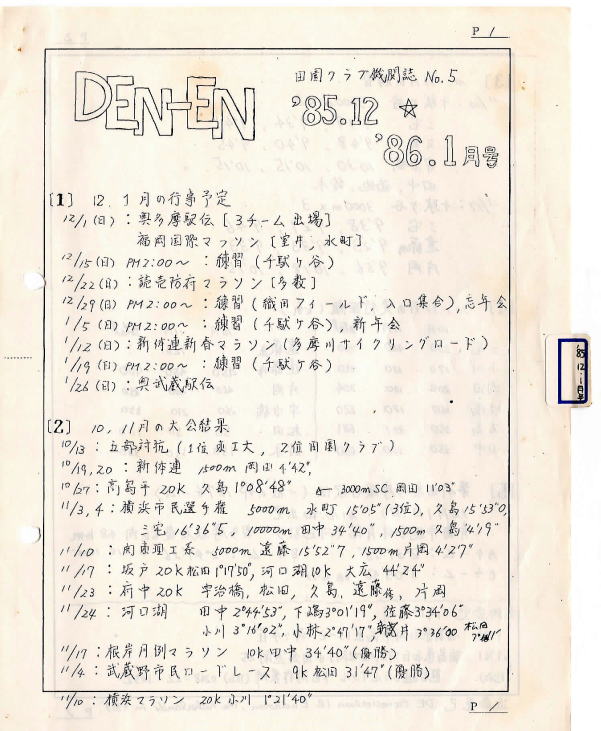 P 1
DEN-EN
田園クラブ機関誌 No.5
'85.12 ☆
'86.1月号
[1] 12, 1月の行事予定
12/1(日):奥多摩駅伝[3チーム出場]
福岡国際マラソン[室井、水町]
12/15(日) PM2:00~ :練習(千駄ヶ谷)
12/22(日):読売防府マラソン[多数]
12/29(日) PM2:00~ :練習(織田フィールド、入口集合),忘年会
1/5(日) PM2:00~ :練習(千駄ヶ谷),新年会
1/12(日):新体連新春マラソン(多摩川サイクリングロード)
1/19(日) PM2:00~ :練習(千駄ヶ谷)
1/26(日):奥武蔵駅伝
[2] 10, 11月の大会結果
10/13:五部対抗(1位東工大, 2位田園クラブ)
10/19,20:新体連 1500m 岡田 4'42",
10/27:高島平 20K 久島 1°08'48" ← 3000mSC 岡田 11'03"
11/3,4:横浜市民選手権 5000m 水町 15'05"(3位), 久島 15'53"0,
三宅 16'36"5, 10000m 田中 34'40", 1500m 久島 4'19"
11/10:関東理工系 5000m 遠藤 15'52"7, 1500m 片岡 4'27"
11/17:坂戸 20K 松田 1°17'50", 河口湖 10K 大広 44'24"
11/23:府中 20K 宇治橋, 松田, 久島, 遠藤, 片岡
11/24:河口湖 田中 2°44'53", 下嶋 3°01'19", 佐藤 3°34'06"
小川 3°16'02", 小林 2°47'17", 片 3°36'00 松田
11/17:根岸月例マラソン 10K 田中 34'40"(優勝)
11/4:武蔵野市民ロードレース 9K 松田 31'47"(優勝)
11/10:横浜マラソン 20K 小川 1°21'40"
P 1
'85 12.1月号